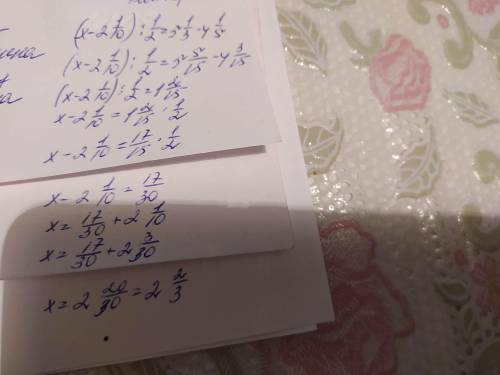 (x-2 1/10) : 1/2 = 5 1/3 - 4 1/5
(x-2 1/10) : 1/2 = 5 5/15 - 4 3/15
(x-2 1/10) : 1/2 = 1 2/15
x-2 1/10 = 1 2/15 · 1/2
x-2 1/10 = 17/15 · 1/2
x-2 1/10 = 17/30
x= 17/30 + 2 1/10
x= 17/30 + 2 3/30
x= 2 20/30 = 2 2/3